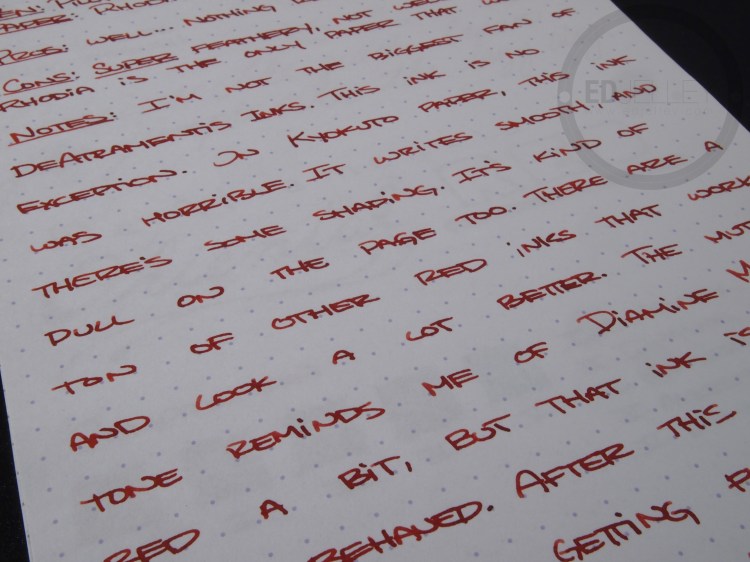 PAPER: RHODIA
PROS: WELL... NOTHING
CONS: SUPER FEATHERY, NOT WELL
RHODIA IS THE ONLY PAPER THAT
NOTES: I'M NOT THE BIGGEST FAN OF
DEATRAMENTIS INKS. THIS INK IS NO
EXCEPTION. ON KYOKUTO PAPER, THIS INK
WAS HORRIBLE. IT WRITES SMOOTH, AND
THERE'S SOME SHADING. IT'S KIND OF
DULL ON THE PAGE TOO. THERE ARE A
TON OF OTHER RED INKS THAT WORK
AND LOOK A LOT BETTER. THE
TONE REMINDS ME OF DIAMINE
RED A BIT, BUT THAT INK IS
BEHAVED. AFTER THIS
GETTING